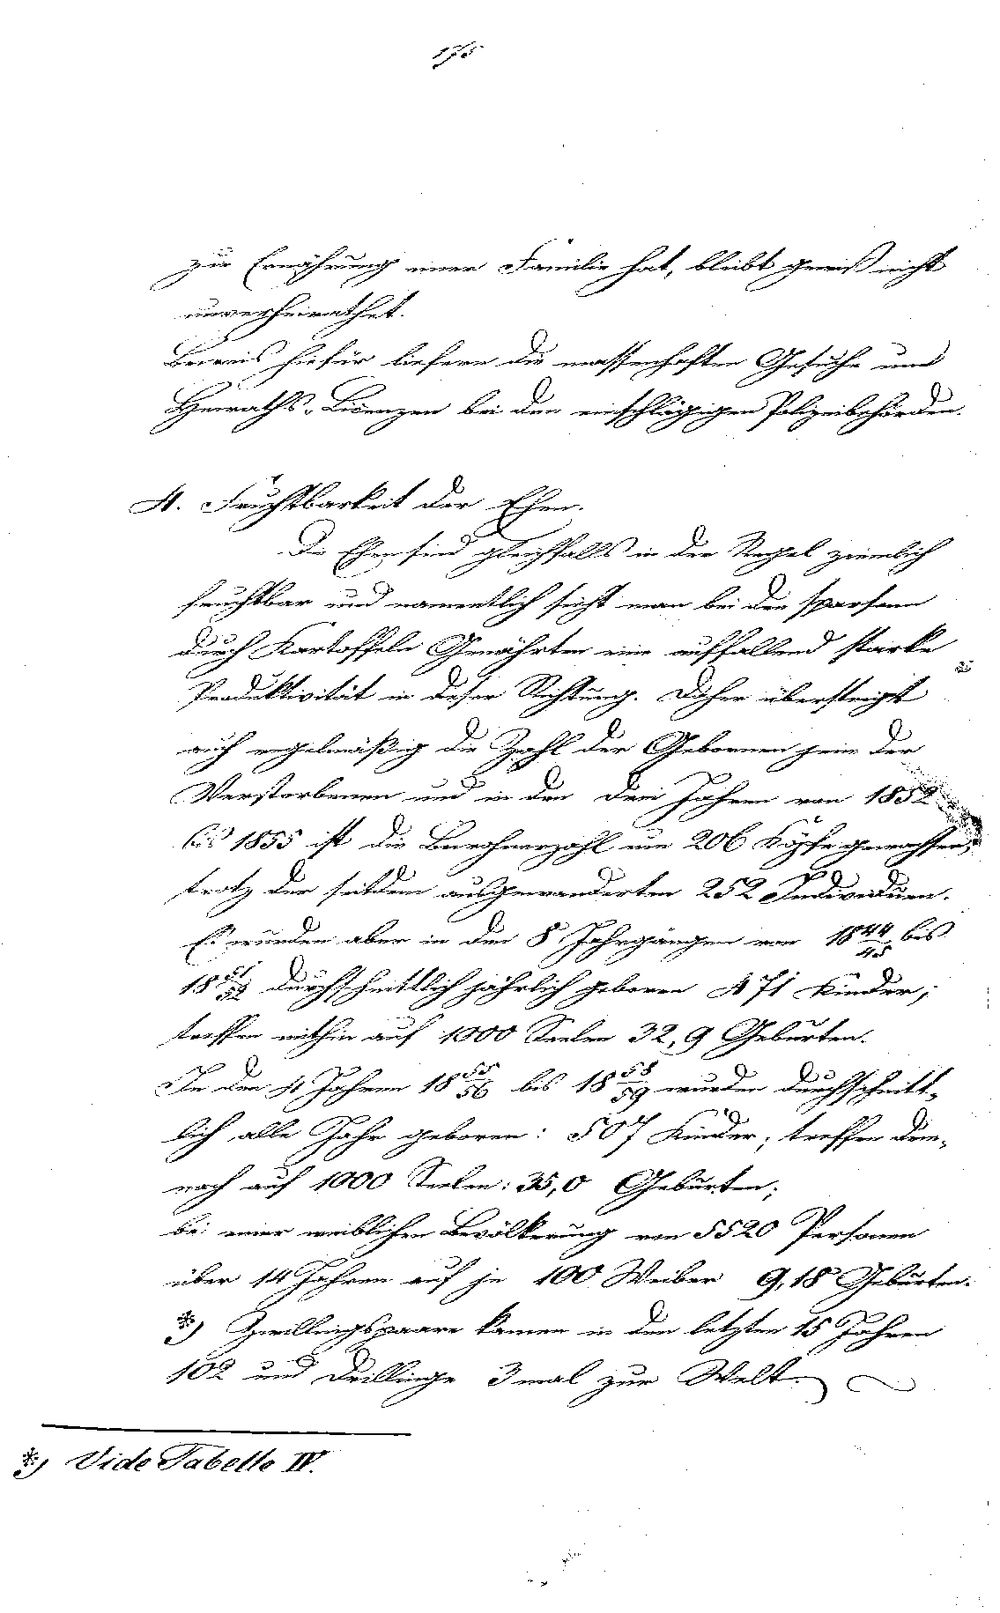 175
zur Ernährung einer Familie hat, bleibt gewiß nicht
unverheirathet.
Beweis hiefür liefern die massenhaften Gesuche um
Heiraths-Licenzen bei den einschlägigen Polizeibehörden.
4. Fruchtbarkeit der Ehen.
Die Ehen sind gleichfalls in der Regel ziemlich
fruchtbar und namentlich sieht man bei den sparsam
durch Kartoffeln Genährten eine auffallend starke
Produktivität in dieser Richtung. Daher übersteigt
auch regelmäßig die Zahl der Gebornen jene der
Verstorbenen und in den drei Jahren von 1852
bis 1855 ist die Einwohnerzahl um 206 Köpfe gewachsen,
trotz der seitdem ausgewanderten 252 Individuen.
Es wurden aber in den 8 Jahrgängen von 1844/45 bis
1851/52 durchschnittlich jährlich geboren 471 Kinder;
treffen mithin auf 1000 Seelen 32,9 Geburten.
In den 4 Jahren 1855/56 bis 1858/59 wurden durchschnitt-
lich alle Jahr geboren: 507 Kinder; treffen dem-
nach auf 1000 Seelen: 35,0 Geburten;
bei einer weiblichen Bevölkerung von 5520 Personen
über 14 Jahren auf je 100 Weiber 9,18 Geburten.
*) Zwillingspaare kamen in den letzten 15 Jahren
102 und Drillinge 3 mal zur Welt.
*) Vide Tabelle IV.